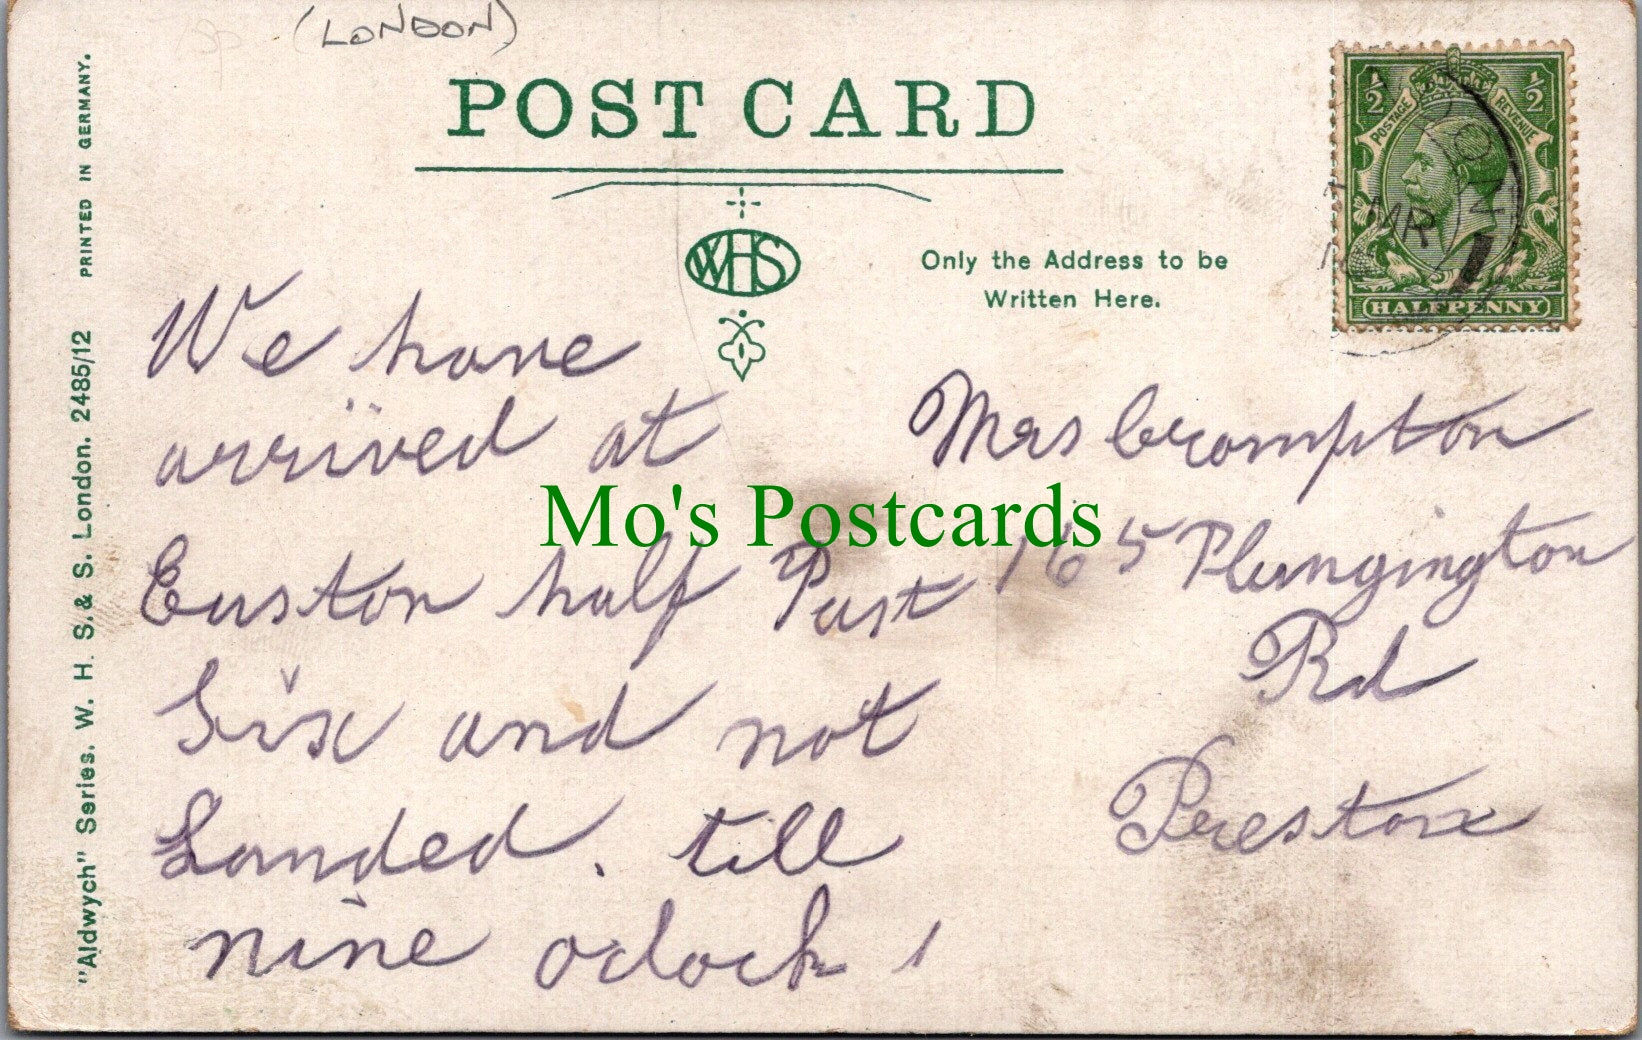 (LONDON)
POST CARD
WHS
Only the Address to be
Written Here.
½ ½
POSTAGE REVENUE
HALFPENNY
MR
PRINTED IN GERMANY.
"Aldwych" Series. W. H. S. & S. London. 2485/12
We have
arrived at
Euston half Past
Six and not
Landed. till
nine oclock
Mrs Crompton
165 Plungington
Rd
Preston
Mo's Postcards